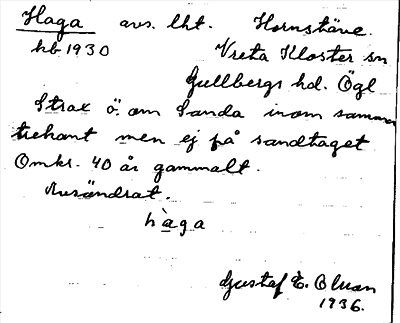 Haga avs. lht. Hornstäve.
hb 1930 Vreta Kloster sn
Gullbergs hd. Ögl
Strax ö. om Sanda inom samma
trekant men ej på sandtaget
Omkr. 40 år gammalt.
Avsöndrat.
hàga
Gustaf E.
1936.